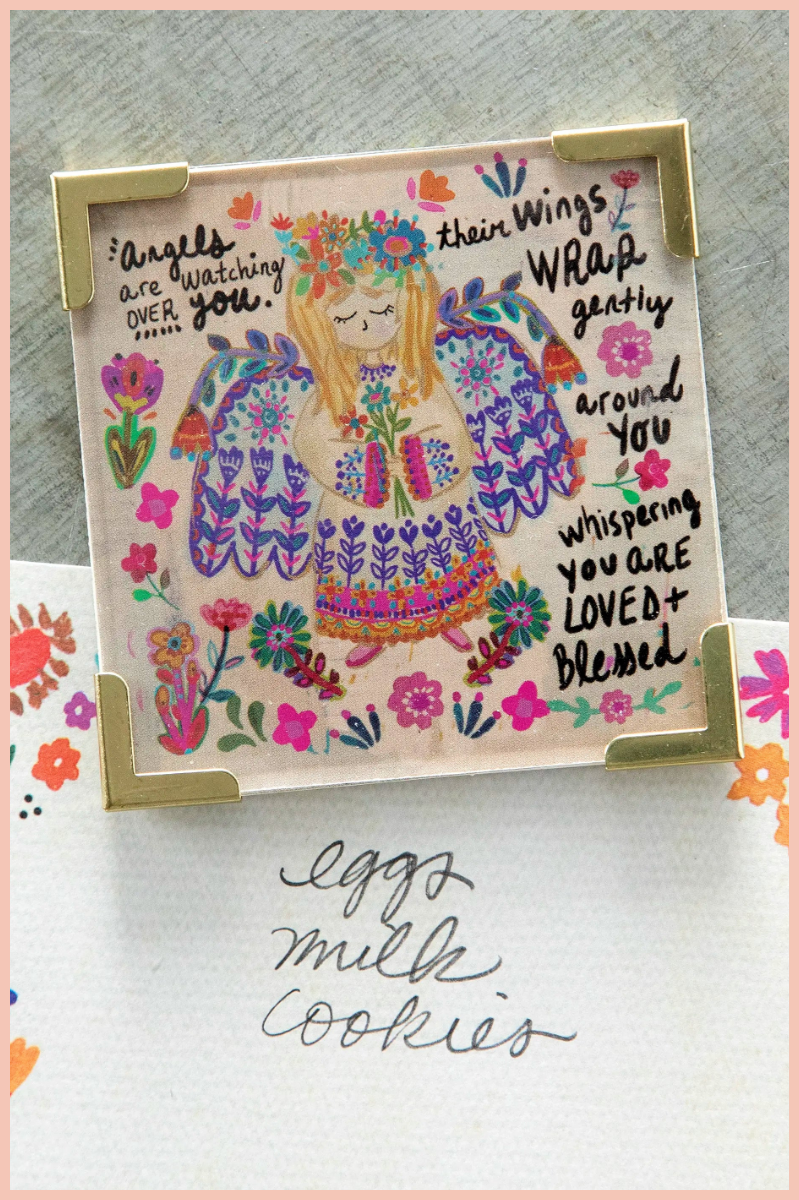 angels
are watching
OVER you.
their wings
WRAP
gently
around
You
whispering
YOU ARE
LOVED +
Blessed
eggs
milk
cookies